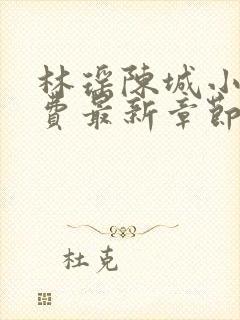 林瑶陳城小
費最新章節
杜克